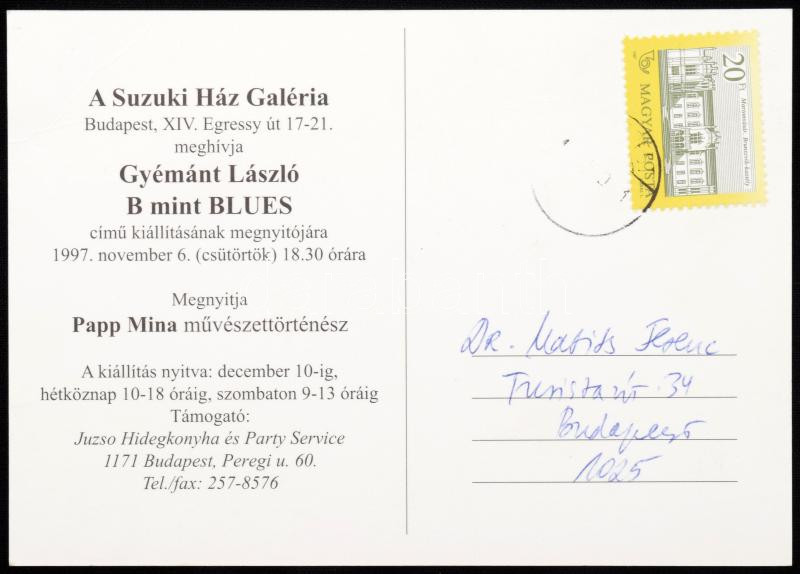 A Suzuki Ház Galéria
Budapest, XIV. Egressy út 17-21.
meghívja
Gyémánt László
B mint BLUES
című kiállításának megnyitójára
1997. november 6. (csütörtök) 18.30 órára
Megnyitja
Papp Mina művészettörténész
A kiállítás nyitva: december 10-ig,
hétköznap 10-18 óráig, szombaton 9-13 óráig
Támogató:
Juzso Hidegkonyha és Party Service
1171 Budapest, Peregi u. 60.
Tel./fax: 257-8576
20 Ft
MAGYAR POSTA
Martonvásár, Brunszvik-kastély
Dr. Matits Ferenc
Turista út 34
Budapest
1025